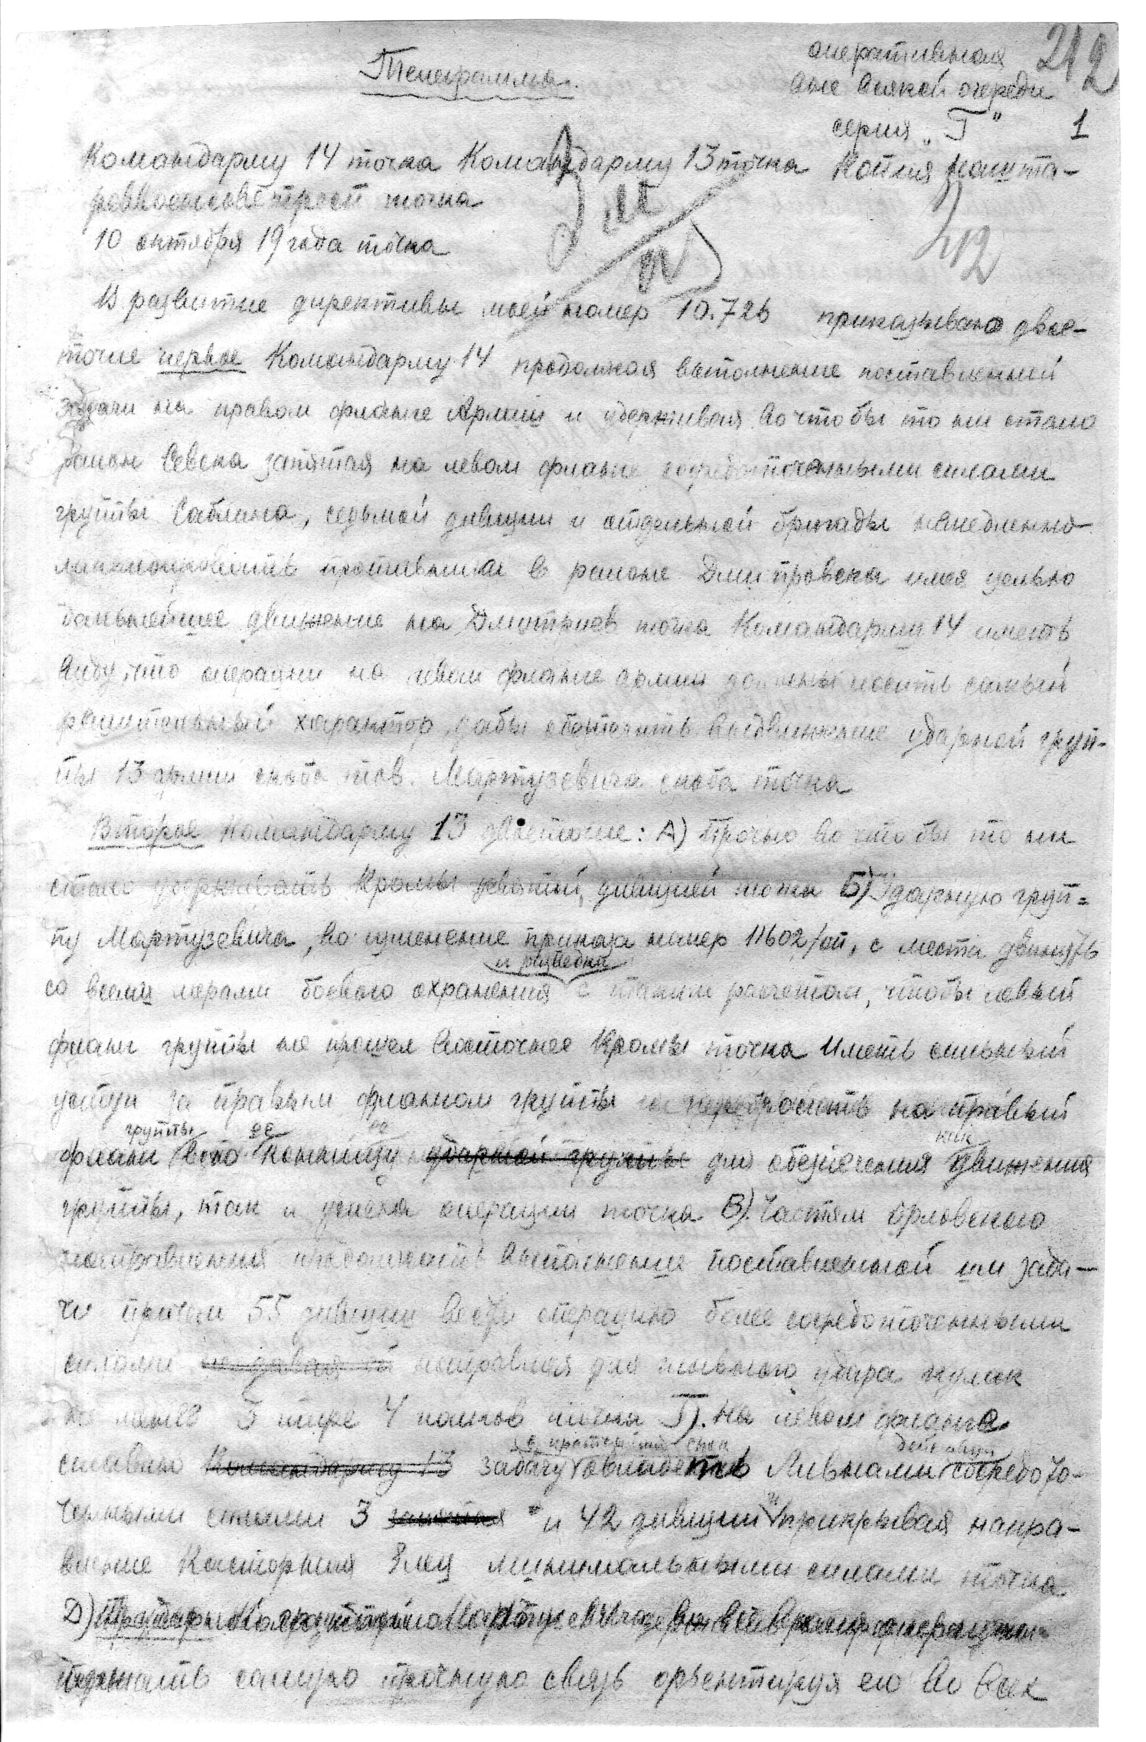 оперативная 212
Телеграмма. вне всякой очереди
серия „Г" 1
Командарму 14 точка Командарму 13 точка Копия Нашта-
реввоенсовет точка
10 октября 19 года точка
412
В развитие директивы моей номер 10.726 приказываю двое-
точие первое Командарму 14 продолжая выполнение поставленной
задачи на правом фланге Армии и удерживая во что бы то ни стало
район Севска запятая на левом фланге сосредоточенными силами
группы Саблина, седьмой дивизии и отдельной бригады немедленно
ликвидировать противника в районе Дмитровска имея целью
дальнейшее движение на Дмитриев точка Командарму 14 иметь
ввиду, что операции на левом фланге армии должны носить самый
решительный характер, дабы облегчить выдвижение ударной груп-
пы 13 армии скоба тов. Мартузевича скоба точка
Второе Командарму 13 двоеточие: А) Прочно во что бы то ни
стало удерживать Кромы девятой дивизией точка Б) Ударную груп-
пу Мартузевича, во изменение приказа номер 11602/оп, с места двинуть
и разведки
со всеми мерами боевого охранения с таким расчетом, чтобы левый
фланг группы не прошел восточнее Кромы точка Иметь сильный
уступ за правым фланком группы перебросить на правый
группы ее как
фланг всю конницу ударной группы для обеспечения движения
группы, так и успеха операции точка В). Частям Орловского
направления продолжать выполнение поставленной им зада-
чи причем 55 дивизии вести операцию более сосредоточенными
силами не давая ей направляя для главного удара кулак
не менее 3 тире 4 полков точка Г). На левом фланге
в кратчайший срок действуя
ставлю Командарму 13 задачу овладеть Ливнами сосредото-
ченными силами 3 запятая и 42 дивизии прикрывая напра-
вление Касторная Елец минимальными силами точка
Д)
держать самую прочную связь орьентируя его во всех